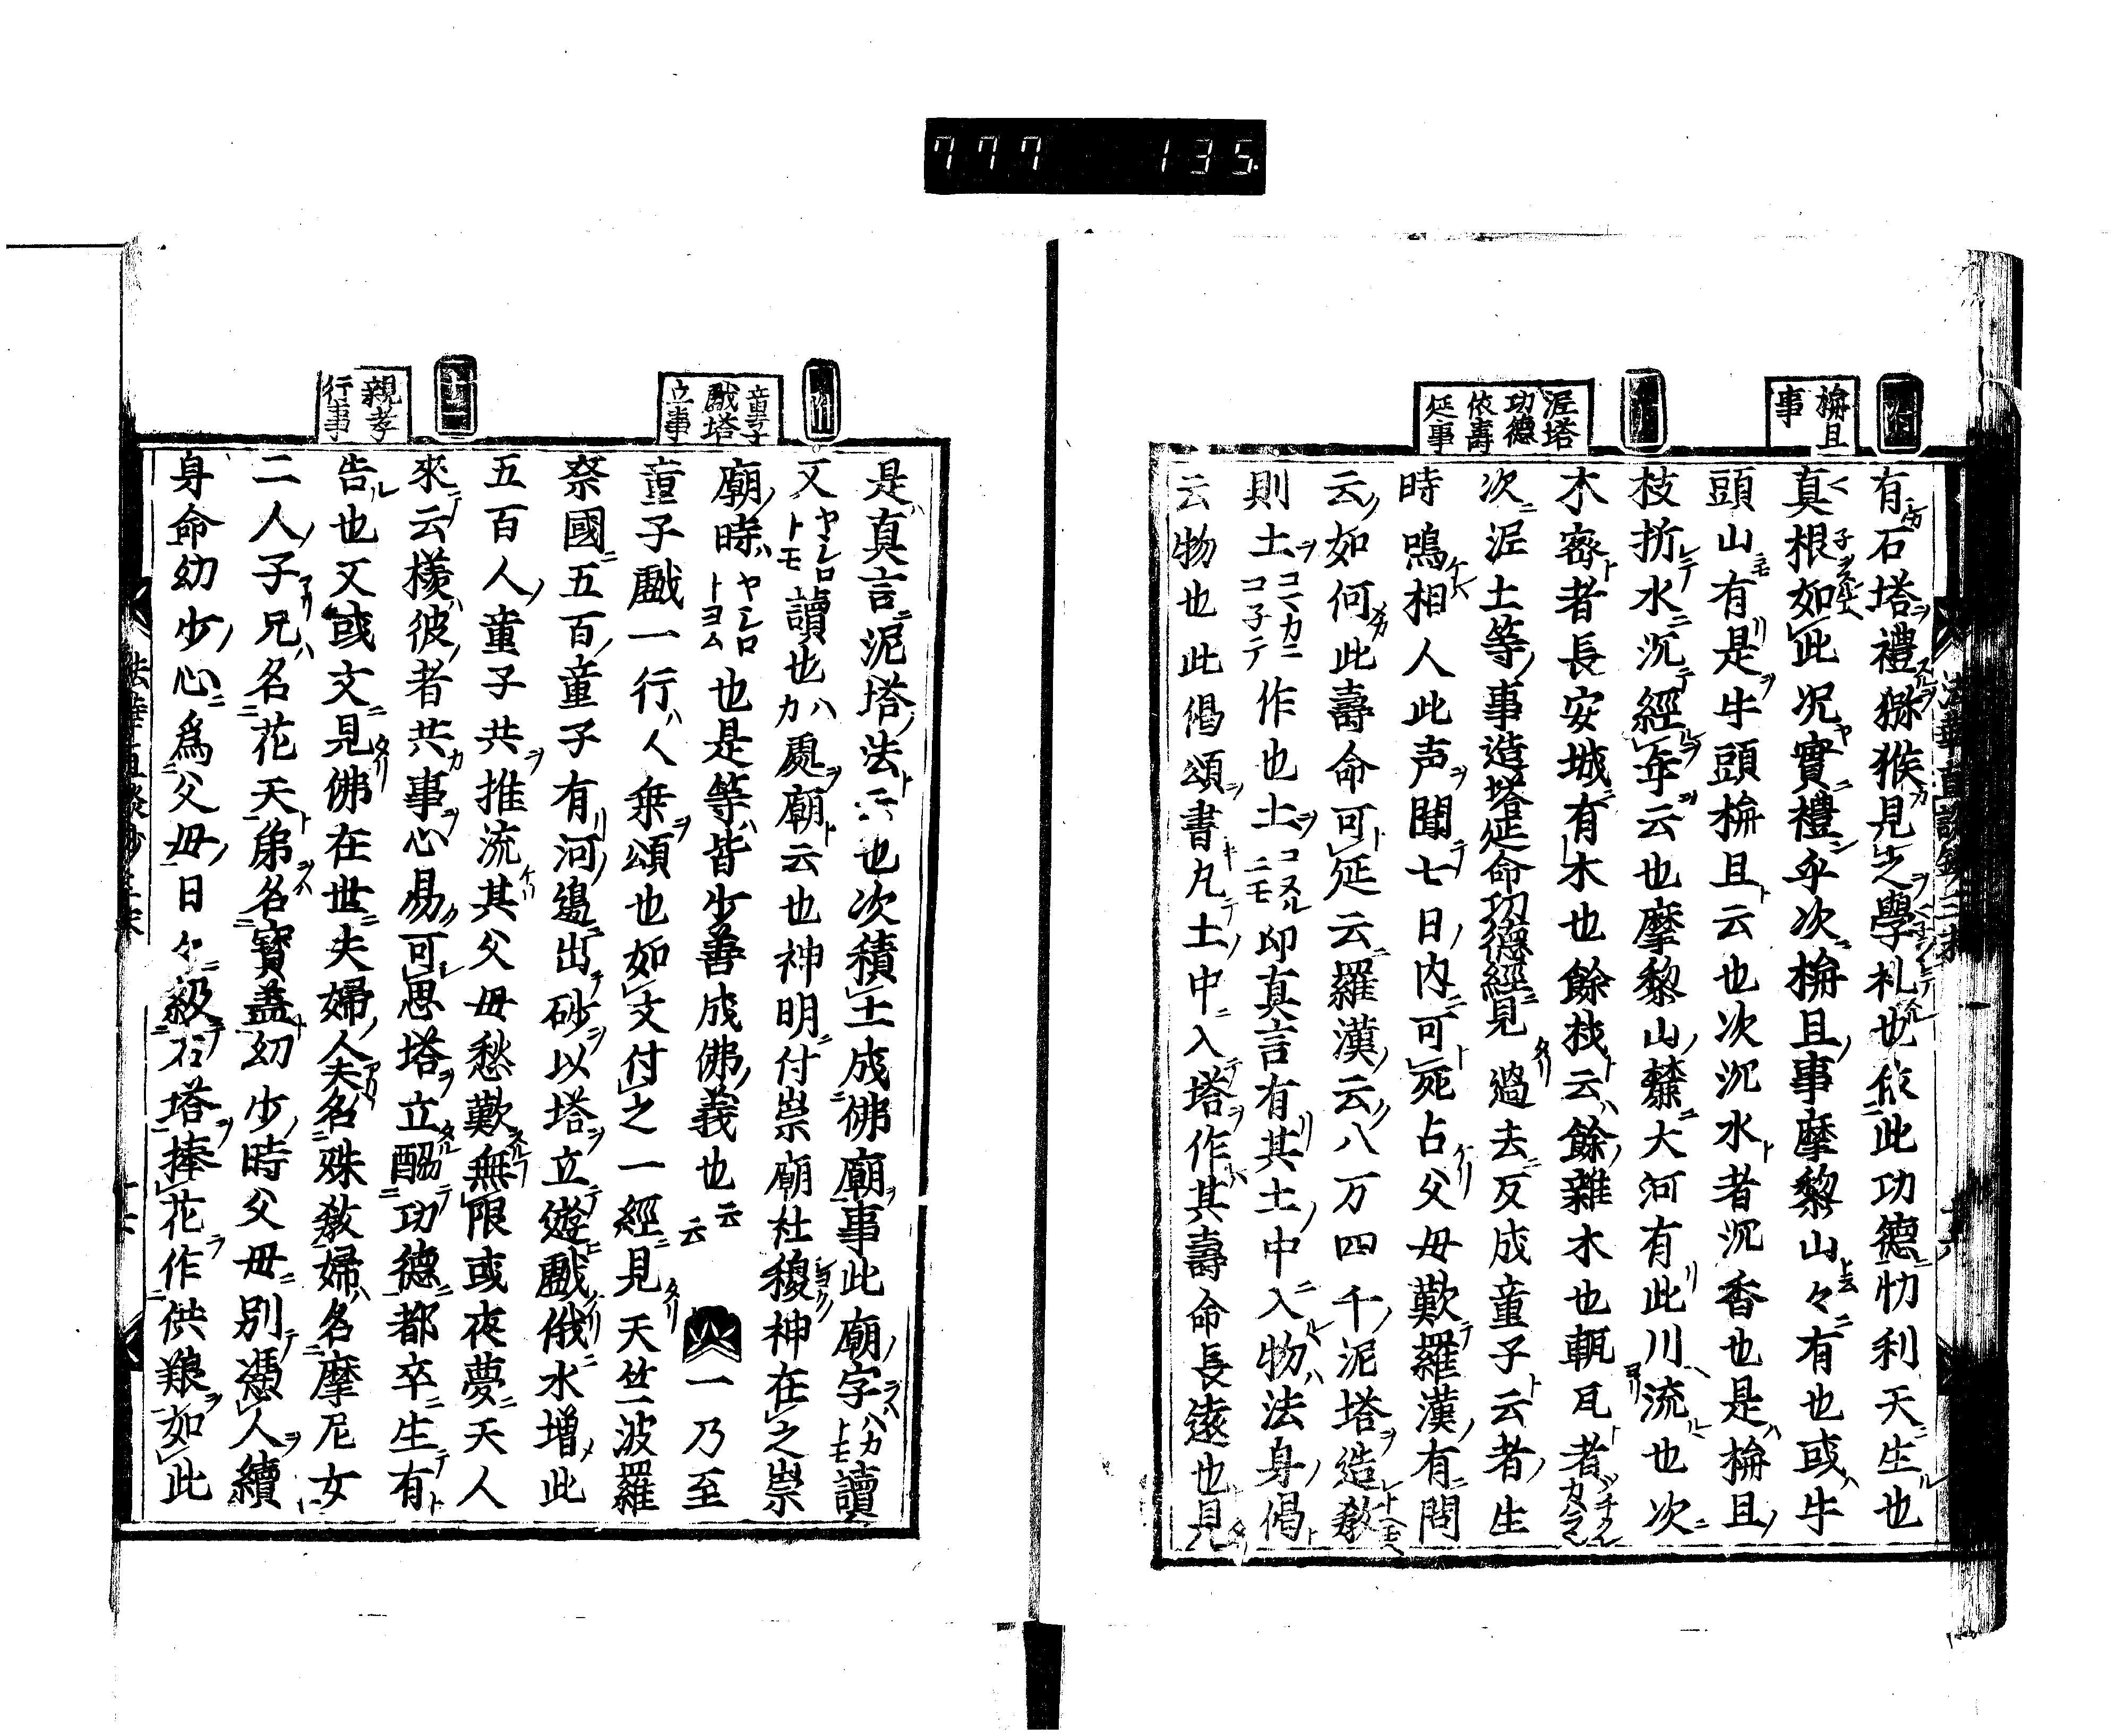 777 135
栴且
事
泥塔
功德
依壽
延事
有石塔禮猕猴見之學札也依此功德忉利天生也
真根如此况實禮乎次栴且事摩黎山々有也或牛
頭山有是牛頭栴且云也次沉水者沉香也是栴且
枝折水沉經年云也摩黎山麓大河有此川流也次
木密者長安城有木也餘枝云餘雜木也甎瓦者
次泥土等事造塔延命功德經見過去反成童子云者生
時鳴相人此声聞七日内可死占父母歎羅漢有問
云如何此壽命可延云羅漢云八万四千泥塔造教
則土コマカニコ子テ作也土コスルニモ印真言有其土中入物法身偈
云物也此偈頌書凡土中入塔作其壽命長遠也見
童子
戯塔
立事
親孝
行事
是真言泥塔法云也次積土成佛廟事此廟字ハカトモ讀
又ヤシロトモ讀也ハカ處廟云也神明付崇廟社稷神在之崇
廟時ヤシロトヨム也是等皆少善成佛義也云云 一乃至
童子戲一行人乗頌也如文付之一經見天竺波羅
奈國五百童子有河邉出砂以塔立遊戲俄水增此
五百人童子共推流其父母愁歎無限或夜夢天人
來云様彼者共事心易可思塔立酬功德都卒生有
告也又或文見佛在世夫婦人夫名殊教婦名摩尼女
二人子兄名花天弟名寳盖幼少時父母別憑人續
身命幼少心爲父母日々級石塔捧花作供粮如此